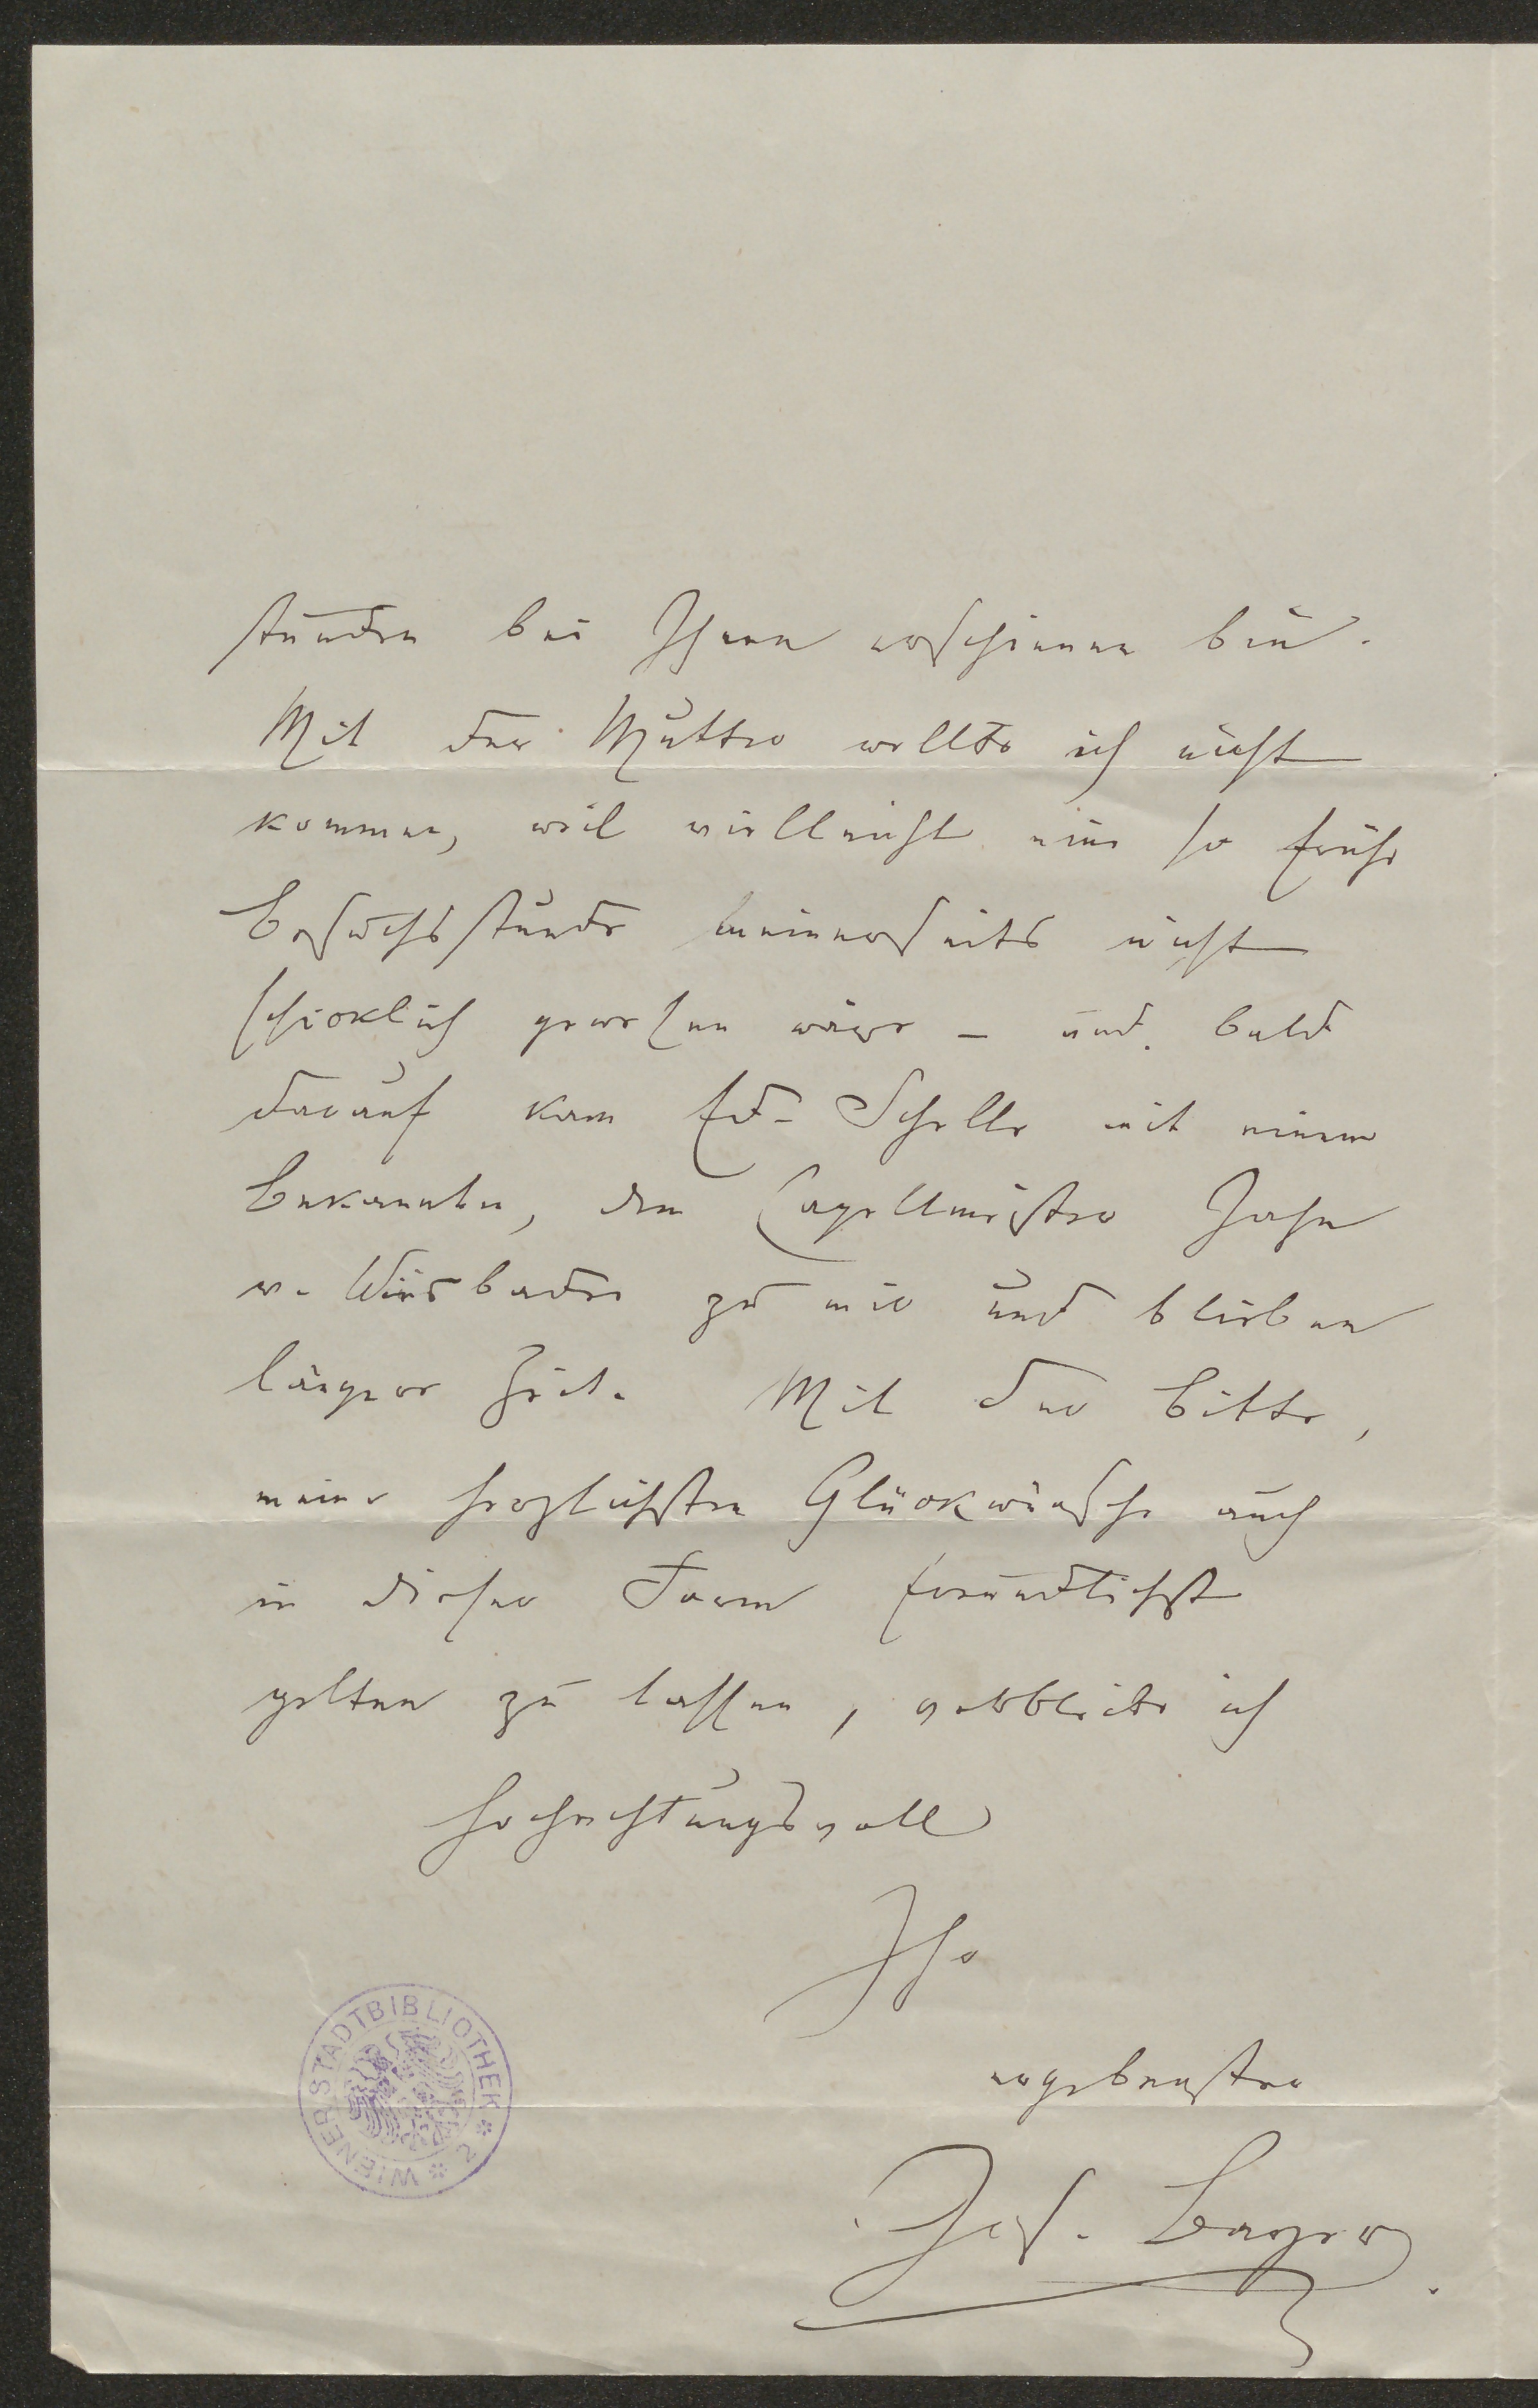 stunden bei Ihnen erschienen bin.
Mit der Mutter wollte ich nicht
kommen, weil vielleicht eine so frühe
Besuchsstunde meinerseits nicht
schicklich gewesen wäre – und bald
darauf kam Ed. Schelle mit einem
Bekannten, dem Capellmeister Jahn
v. Wiesbaden zu mir und blieben
längere Zeit. Mit der Bitte,
meine herzlichsten Glückwünsche auch
in dieser Form freundlichst
gelten zu lassen, verbleibe ich
hochachtungsvoll
Ihr
ergebenster
Jos. Bayer.
WIENER STADTBIBLIOTHEK * 2 *